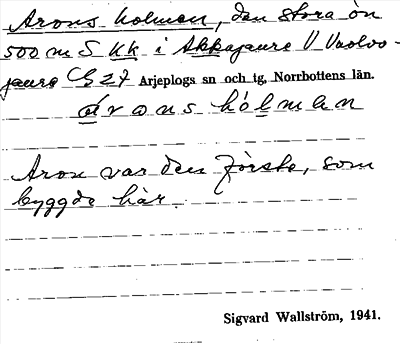 Arons holmen, den stora ön
500 m S kk i Akkajaure V Vuolvo-
jaure Cb 27 Arjeplogs sn och tg, Norrbottens län.
árons hólmen
Aron var den förste, som
byggde här.
Sigvard Wallström, 1941.